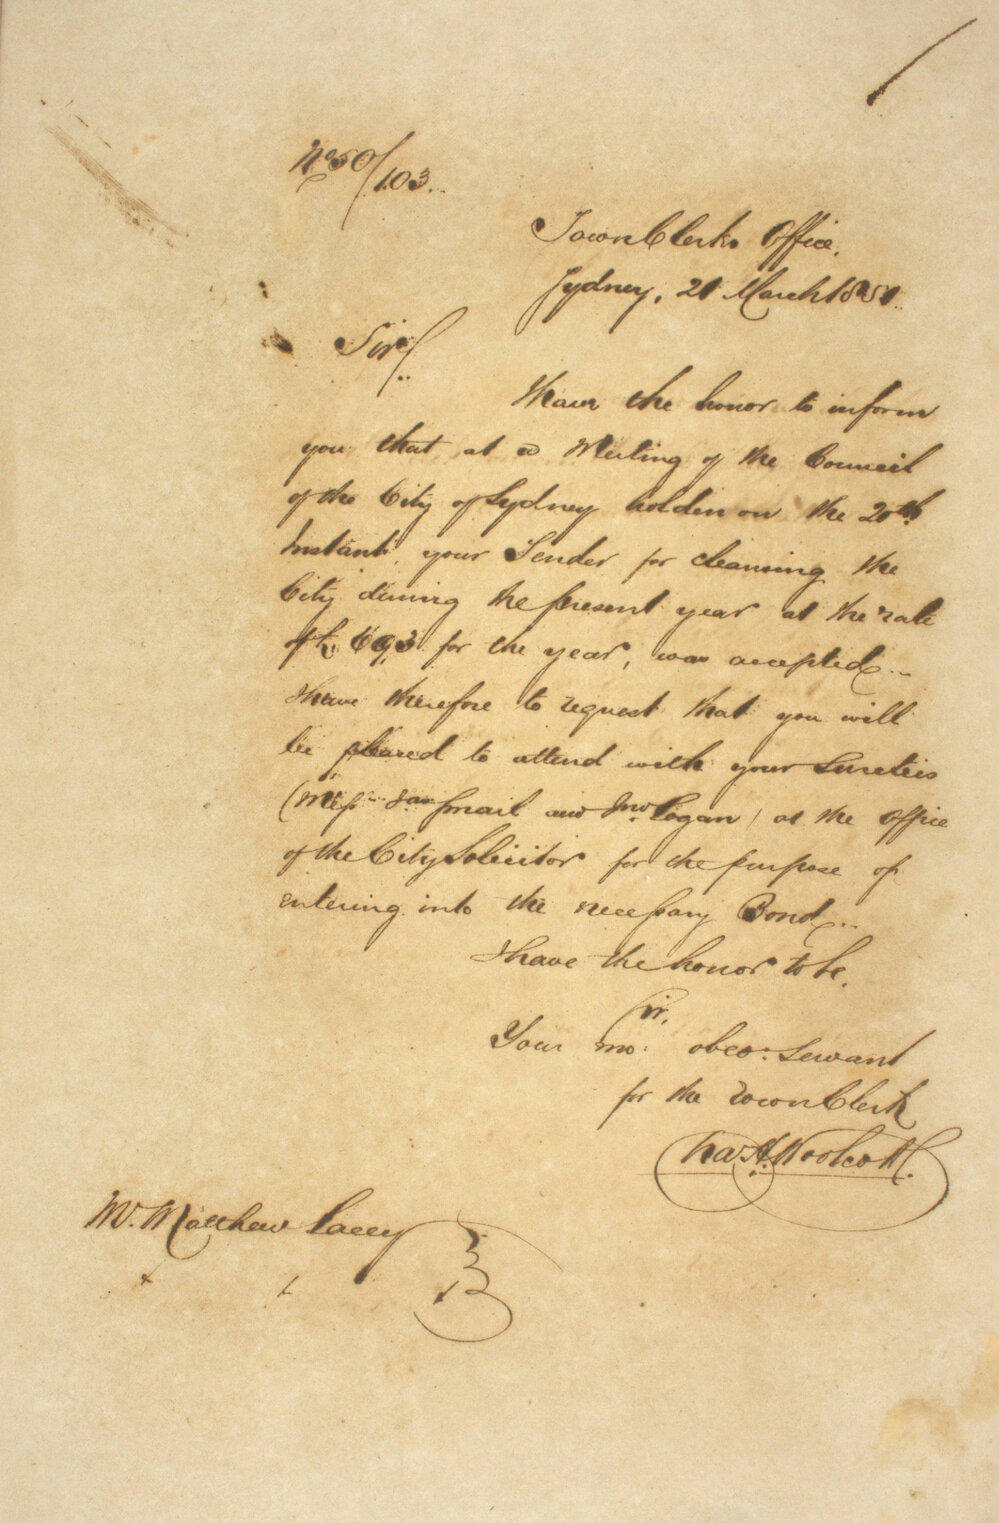 No 50/103..
Town Clerks Office.
Sydney, 21 March 1850..
Sir
I have the honor to inform
you that at a Meeting of the Council
of the City of Sydney holden on the 20th
Instant, your Tender for cleansing the
City during the present year at the rate
of £693 for the year, was accepted...
I have therefore to request that you will
be pleased to attend with your Sureties
(Messrs Jas Smail and Jno Logan) at the Office
of the City Solicitor for the purpose of
entering into the necessary Bond...
I have the honor to be,
Sir,
Your mo: obed: Servant
for the Town Clerk
Chas H. Woolcott.
Mr. Matthew Lacey